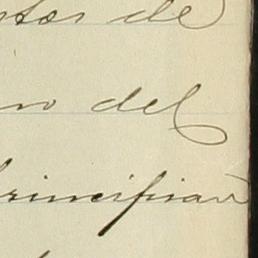 tos de
no del
principian